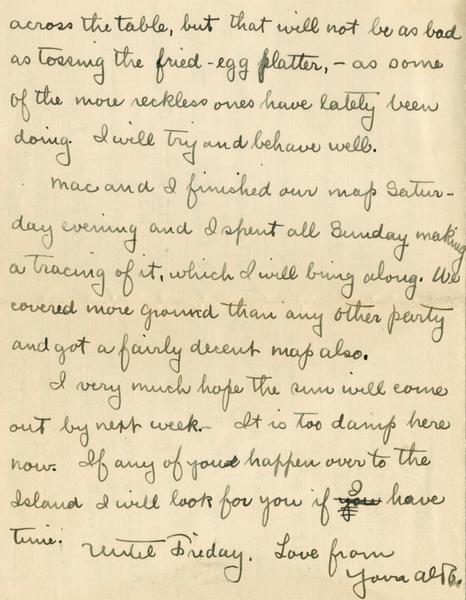 across the table, but that will not be as bad
as tossing the fried-egg platter, - as some
of the more reckless ones have lately been
doing. I will try and behave well.
Mac and I finished our map Satur-
day evening and I spent all Sunday making
a tracing of it, which I will bring along. We
covered more ground than any other party
and got a fairly decent map also.
I very much hope the sun will come
out by next week. - It is too damp here
now. If any of you happen over to the
Island I will look for you if I have
time.
Until Friday. Love from